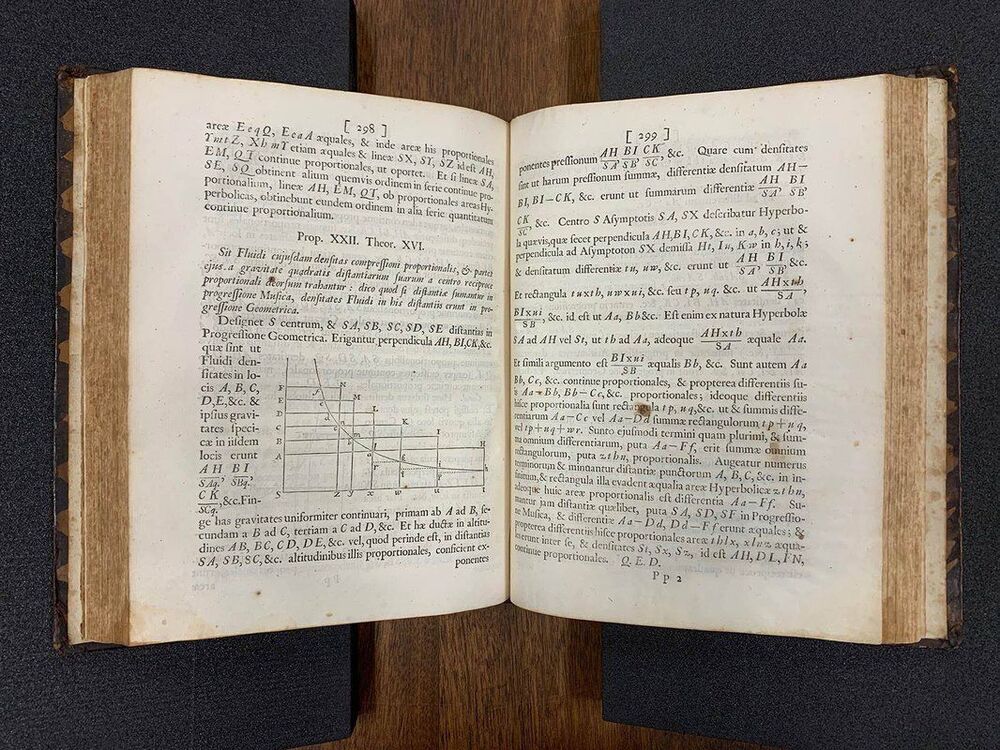 [ 298 ]
areæ EeqQ, EeaA æquales, & inde areæ his proportionales
YmtZ, XhmY etiam æquales & lineæ SX, SY, SZ id est AH,
EM, QT continue proportionales, ut oportet. Et si lineæ SA,
SE, SQ obtinent alium quemvis ordinem in serie continue pro-
portionalium, lineæ AH, EM, QT, ob proportionales areas Hy-
perbolicas, obtinebunt eundem ordinem in alia serie quantitatum
continue proportionalium.
Prop. XXII. Theor. XVI.
Sit Fluidi cujusdam densitas compressioni proportionalis, & partes
ejus a gravitate quadratis distantiarum suarum a centro reciproce
proportionali deorsum trahantur: dico quod si distantiæ sumantur in
progressione Musica, densitates Fluidi in his distantiis erunt in pro-
gressione Geometrica.
Designet S centrum, & SA, SB, SC, SD, SE distantias in
Progressione Geometrica. Erigantur perpendicula AH, BI, CK, &c.
quæ sint ut
Fluidi den-
sitates in lo-
cis A, B, C,
D, E, &c. &
ipsius gravi-
tates speci-
ficæ in iisdem
locis erunt
AH BI
SAq.' SBq.'
CK
SCq. , &c. Fin-
F
E
D
C
B
A
S
N
M
L
K
I
H
z y x w u t
ge has gravitates uniformiter continuari, primam ab A ad B, se-
cundam a B ad C, tertiam a C ad D, &c. Et hæ ductæ in altitu-
dines AB, BC, CD, DE, &c. vel, quod perinde est, in distantias
SA, SB, SC, &c. altitudinibus illis proportionales, conficient ex-
ponentes
[ 299 ]
ponentes pressionum AH/SA, BI/SB, CK/SC, &c. Quare cum densitates
sint ut harum pressionum summæ, differentiæ densitatum AH—
BI, BI—CK, &c. erunt ut summarum differentiæ AH/SA, BI/SB,
CK/SC, &c. Centro S Asymptotis SA, SX describatur Hyperbo-
la quævis, quæ secet perpendicula AH, BI, CK, &c. in a, b, c; ut &
perpendicula ad Asymptoton SX demissa Ht, Iu, Kw in h, i, k;
& densitatum differentiæ tu, uw, &c. erunt ut AH/SA, BI/SB, &c.
Et rectangula tu x th, uw x ui, &c. seu tp, uq, &c. ut AH x th/SA,
BI x ui/SB, &c. id est ut Aa, Bb &c. Est enim ex natura Hyperbolæ
SA ad AH vel St, ut th ad Aa, adeoque AH x th/SA æquale Aa.
Et simili argumento est BI x ui/SB æqualis Bb, &c. Sunt autem Aa
Bb, Cc, &c. continue proportionales, & propterea differentiis su-
is Aa—Bb, Bb—Cc, &c. proportionales; ideoque differentiis
hisce proportionalia sunt rectangula tp, uq, &c. ut & summis diffe-
rentiarum Aa—Cc vel Aa—Dd summæ rectangulorum tp+uq,
vel tp+uq+wr. Sunto ejusmodi termini quam plurimi, & sum-
ma omnium differentiarum, puta Aa—Ff, erit summæ omnium
rectangulorum, puta zthn, proportionalis. Augeatur numerus
terminorum & minuantur distantiæ punctorum A, B, C, &c. in in-
finitum, & rectangula illa evadent æqualia areæ Hyperbolicæ zthn,
adeoque huic areæ proportionalis est differentia Aa—Ff. Su-
mantur jam distantiæ quælibet, puta SA, SD, SF in Progressio-
ne Musica, & differentiæ Aa—Dd, Dd—Ff erunt æquales; &
propterea differentiis hisce proportionales areæ thlx, xlnz æqua-
les erunt inter se, & densitates St, Sx, Sz, id est AH, DL, FN,
continue proportionales. Q. E. D.
Pp 2